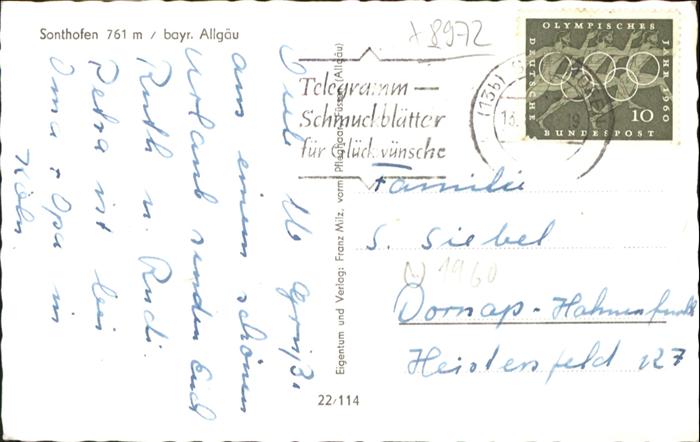 Sonthofen 761 m / bayr. Allgäu
Viele lb Grüße
aus einem schönen
Urlaub senden Euch
Ruth u. Rudi.
Petra ist bei
Oma + Opa in
Köln.
Eigentum und Verlag: Franz Milz, vorm. Pfleghaar, Füssen (Allgäu)
22/114
+ 8972
Telegramm-
Schmuckblätter
für Glückwünsche
(13b)
13.
19
OLYMPISCHES
JAHR 1960
DEUTSCHE
BUNDESPOST
10
Familie
S. Siebel
1960
Dornap-Hahnenfurth
Heistersfeld 127